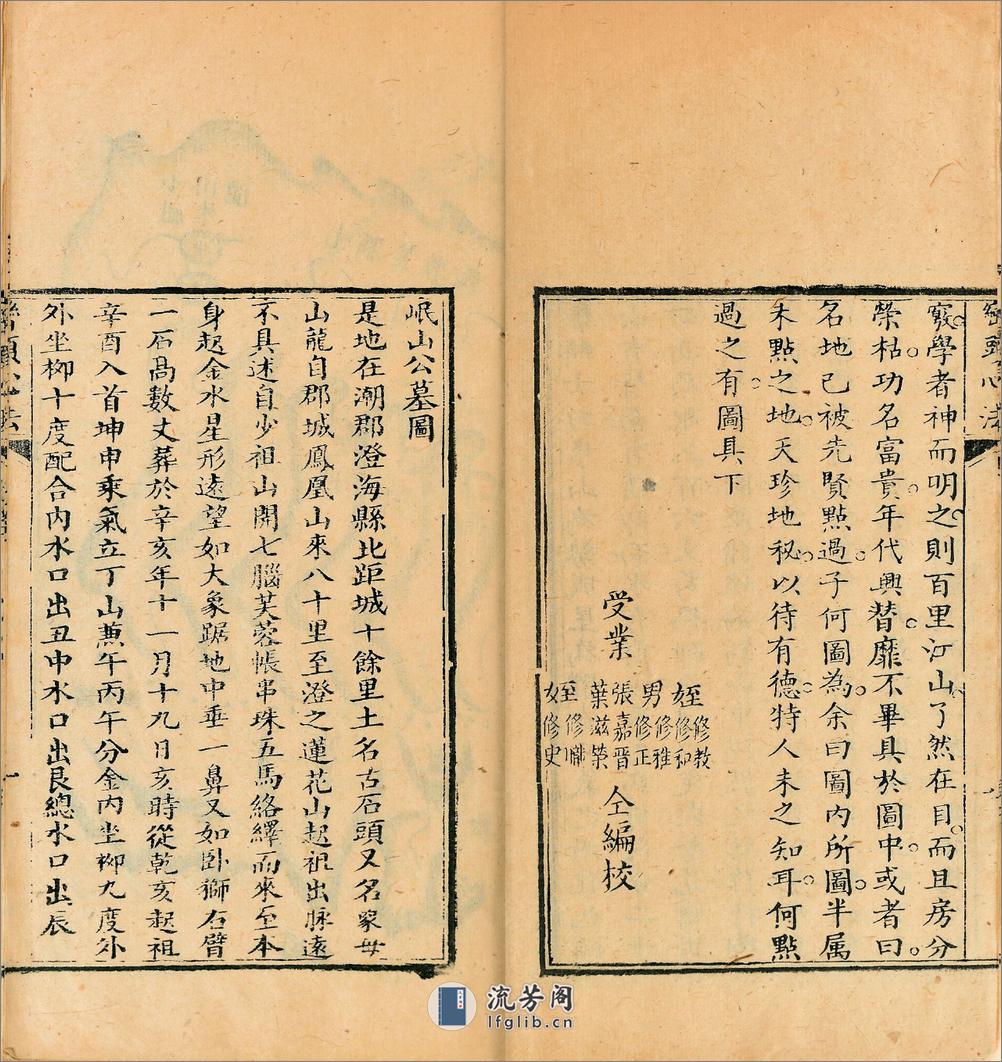 巒頭心法
竅學者神而明之則百里江山了然在目而且房分
榮枯功名富貴年代興替靡不畢具於圖中或者曰
名地已被先賢點過子何圖為余曰圖內所圖半属
未點之地天珍地秘以待有德特人未之知耳何點
過之有圖具下
受業
姪修教
姪修和
男修雅
男修正
張嘉晋
葉滋榮
姪修
姪修史
仝編校
岷山公墓圖
是地在潮郡澄海縣北距城十餘里土名古石頭又名家毋
山龍自郡城鳳凰山來八十里至澄之蓮花山起祖出脉遠
不具述自少祖山開七腦芙蓉帳串珠五馬絡繹而來至本
身起金水星形遠望如大象踞地中垂一鼻又如卧獅右臂
一石高數丈葬於辛亥年十一月十九日亥時從乾亥起祖
辛酉入首坤申乘氣立丁山兼午丙午分金內坐柳九度外
外坐柳十度配合內水口出丑中水口出艮總水口出辰
巒頭心法
流芳阁
lfglib.cn